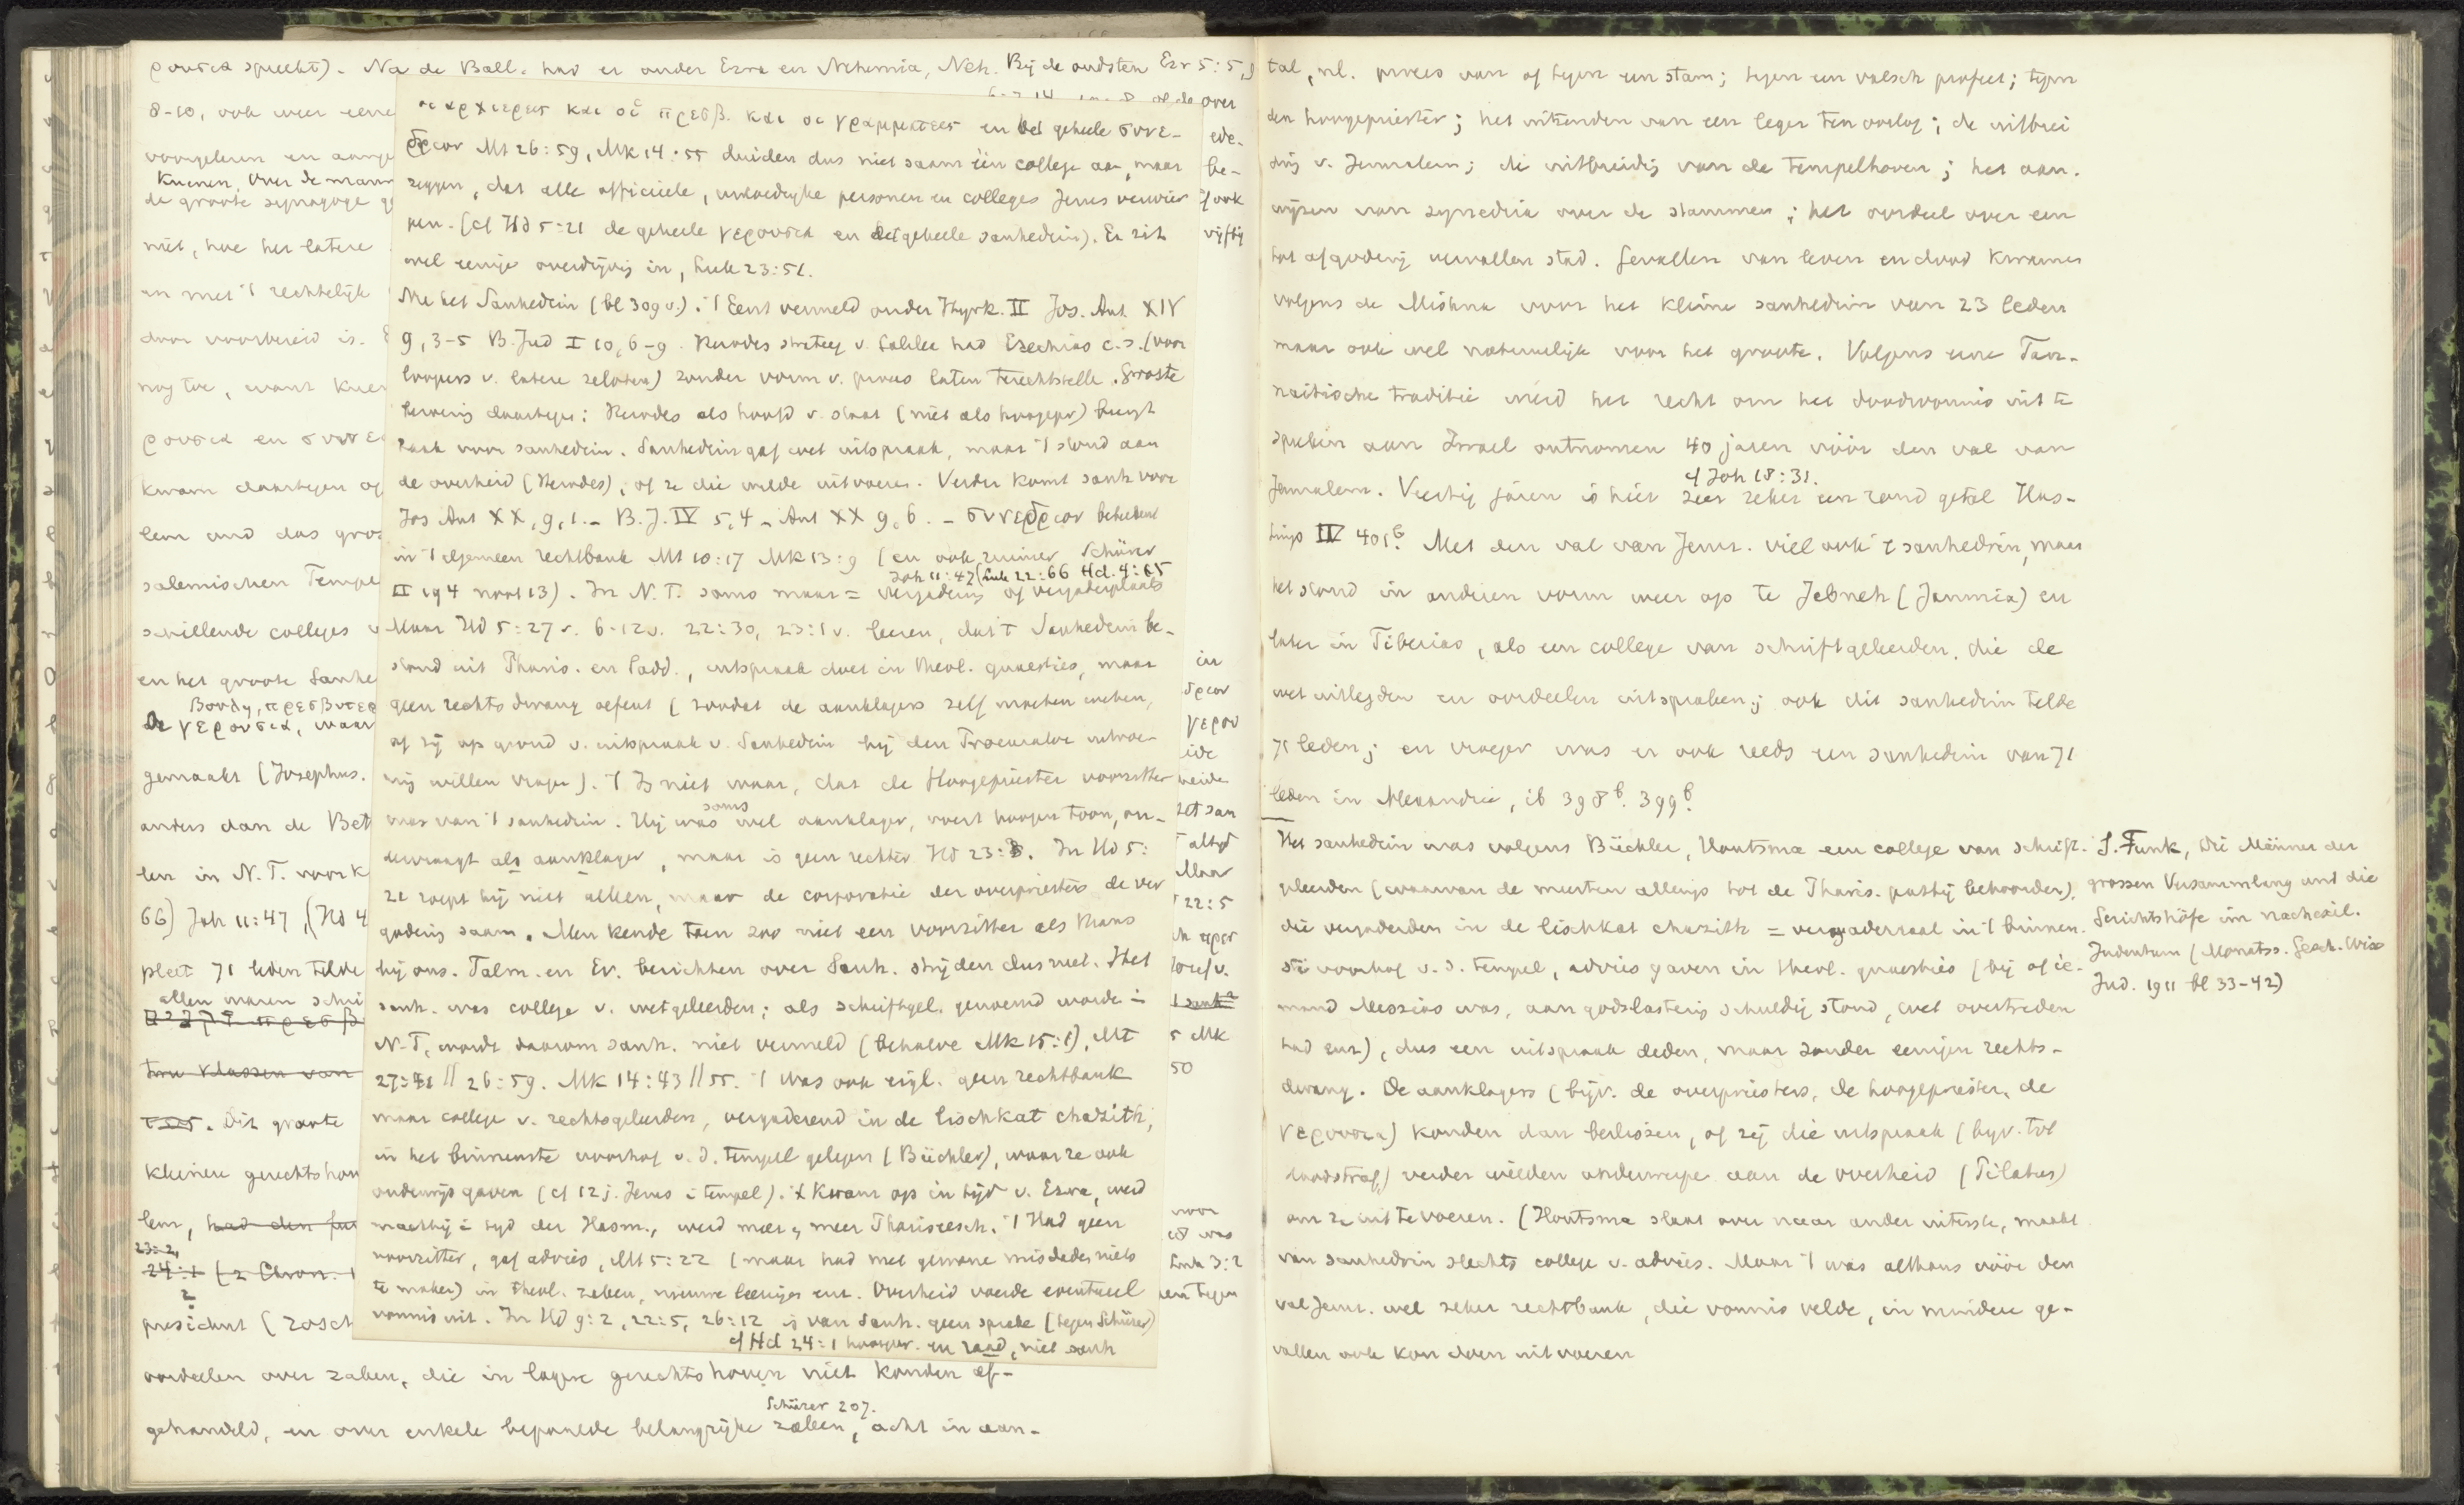 ρουσια spreekt). Na de Ball. had er onder Ezra en Nehemia, Neh. Bij de oudsten Ezr 5:5,9
8-10, ook weer eene
voorgelezen en aange
Kuenen, Over de mann
de groote synagoge g
niet, hoe het latere
en met 't rechtelijk
door voorbereid is.
nog toe, want Kuen
ρουσια en συνε
kwam daartegen op
lem und das gros
salemischen Tempe
schillende colleges v
en het groote Sanhe
Bondg, πρεσβυτερ
De γερουσια, waar
gemaakt (Josephus.
anders dan de Bet
len in N.T. voork
66) Joh 11:47, (Hd 4
pleet 71 leden telde
allen waren schri
πρεσβ
twee klassen van
Dit groote
kleinere gerechtshov
lem, had den fun
23:2,
24:1 (2 Chron.
president (zoscht
oordeelen over zaken, die in lagere gerechtshoven niet konden af-
Schürer 207.
gehandeld, en over enkele bepaalde belangrijke zaken, acht in aan-
οι αρχιερεις και οἱ πρεσβ. και οι γραμματεις en het geheele συνε-
δριον Mt 26:59, Mk 14:55 duiden dus niet saam één college aan, maar
zeggen, dat alle officieele, invloedrijke personen en colleges Jezus verwier
pen. (cf Hd 5:21 de geheele γερουσια en het geheele sanhedrin). Er zit
wel eenige overdrijving in, Luk 23:51.
Nu het Sanhedrin (bl 309 v.). 't Eerst vermeld onder Hyrk. II Jos. Ant. XIV
9,3-5 B. Jud I 10,6-9. Herodes strateeg v. Galilea had Ezechias c.s. (voor
loopers v. latere zeloten) zonder vorm v. proces laten terechtstellen. Groote
beweging daartegen: Herodes als hoofd v. staat (niet als hoogepr) brengt
zaak voor sanhedrin. Sanhedrin gaf wel uitspraak, maar 't stond aan
de overheid (Herodes), of ze die wilde uitvoeren. Verder komt sanh voor
Jos Ant XX, 9,1. - B.J. IV 5,4 - Ant XX 9,6. - συνεδριον beteekent
in 't algemeen rechtbank Mt 10:17 Mk 13:9 (en ook ruimer Schürer
Joh 11:47 (Luk 22:66 Hd. 4:15
II 194 noot 13). In N.T. soms maar = vergadering of vergaderplaats
Maar Hd 5:27 v. 6:12 v. 22:30, 23:1 v. leeren, dat 't Sanhedrin be-
stond uit Pharis. en Sadd., uitspraak doet in theol. quaesties, maar
geen rechtsdwang oefent (zoodat de aanklagers zelf moeten weten,
of zij op grond v. uitspraak v. Sanhedrin bij den Procurator uitvoe-
ring willen vragen). 't Is niet waar, dat de Hoogepriester voorzitter
was van 't sanhedrin. Hij was soms wel aanklager, voert hoogen toon, on-
dervraagt als aanklager, maar is geen rechter Hd 23:3. In Hd 5:
21 roept hij niet alleen, maar de corporatie der overpriesters de ver
gadering saam. Men kende toen zoo niet een voorzitter als thans
bij ons. Talm. en Ev. berichten over Sanh. strijden dus niet. Het
sanh. was college v. wetgeleerden; als schriftgel. genoemd worden in
N.T, wordt daarom sanh. niet vermeld (behalve Mk 15:1), Mt
27:41 // 26:59. Mk 14:43 // 55. 't Was ook eigl. geen rechtbank
maar college v. rechtsgeleerden, vergaderend in de lischkat chazith,
in het binnenste voorhof v. d. tempel gelegen (Büchler), waar ze ook
onderwijs gaven (cf 12 j. Jezus i tempel). 't Kwam op in tijd v. Ezra, werd
machtig i tijd der Hasm., werd meer en meer Pharizeesch. 't Had geen
voorzitter, gaf advies, Mt 5:22 (maar had met gewone misdaden niets
te maken) in theol. zaken, nieuwe leeringen enz. Overheid voerde eventueel
vonnis uit. In Hd 9:2, 22:5, 26:12 is van Sanh. geen sprake (tegen Schürer)
cf Hd 24:1 hoogepr. en raad, niet sanh
over
ede-
be-
of ook
vijftig
in
δριον
γερου
ide
beide
zet san
altijd
Maar
22:5
5 Mk
50
voor
was
Luk 3:2
een tegen
tal, nl. proces van of tegen een stam; tegen een valsch profeet; tegen
den hoogepriester; het uitzenden van een leger ten oorlog; de uitbrei
ding v. Jeruzalem; de uitbreiding van de tempelhoven; het aan-
wijzen van synedria over de stammen; het oordeel over een
tot afgoderij vervallen stad. Gevallen van leven en dood kwamen
volgens de Mishna voor het kleine sanhedrin van 23 leden
maar ook wel natuurlijk voor het groote. Volgens eene Tan-
naitische traditie werd het recht om het doodvonnis uit te
spreken aan Israel ontnomen 40 jaren vóór den val van
cf Joh 18:31.
Jeruzalem. Veertig jaren is hier zeer zeker een rond getal Has-
tings IV 401b. Met den val van Jeruz. viel ook 't sanhedrin, maar
het stond in anderen vorm weer op te Jebneh (Jamnia) en
later in Tiberias, als een college van schriftgeleerden, die de
wet uitlegden en oordeelen uitspraken; ook dit sanhedrin telde
71 leden; en vroeger was er ook reeds een sanhedrin van 71
leden in Alexandrie, ib 398b. 399b.
Het sanhedrin was volgens Büchler, Houtsma een college van schrift-
geleerden (waarvan de meesten allengs tot de Pharis. partij behoorden),
die vergaderden in de lischkat chazith = vergaderzaal in 't binnen-
ste voorhof v. d. tempel, advies gaven in theol. quaesties (bij of ie-
mand Messias was, aan godslastering schuldig stond, wet overtreden
had enz), dus een uitspraak deden, maar zonder eenigen rechts-
dwang. De aanklagers (bijv. de overpriesters, de hoogepriester, de
γερουσια) konden dan beslissen, of zij die uitspraak (bijv. tot
doodstraf) verder wilden onderwerpen aan de overheid (Pilatus)
om ze uit te voeren. (Houtsma slaat over naar ander uiterste, maakt
van sanhedrin slechts college v. advies. Maar 't was althans vóór den
val Jeruz. wel zeker rechtbank, die vonnis velde, in mindere ge-
vallen ook kon doen uitvoeren
S. Funk, Die Männer der
grossen Versammlung und die
Gerichtshöfe im nachexil.
Judentum (Monatss. Gesch. Wiss
Jud. 1911 bl 33-42)